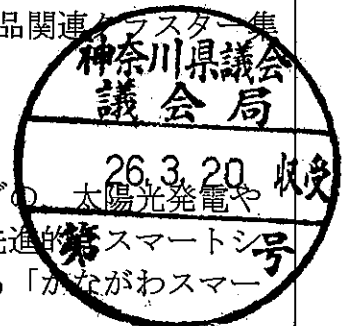 品関連クラスター集
神奈川県議会
議会局
26.3.20 収受
での、太陽光発電や
第 号
先進的なスマートシ
「かながわスマー